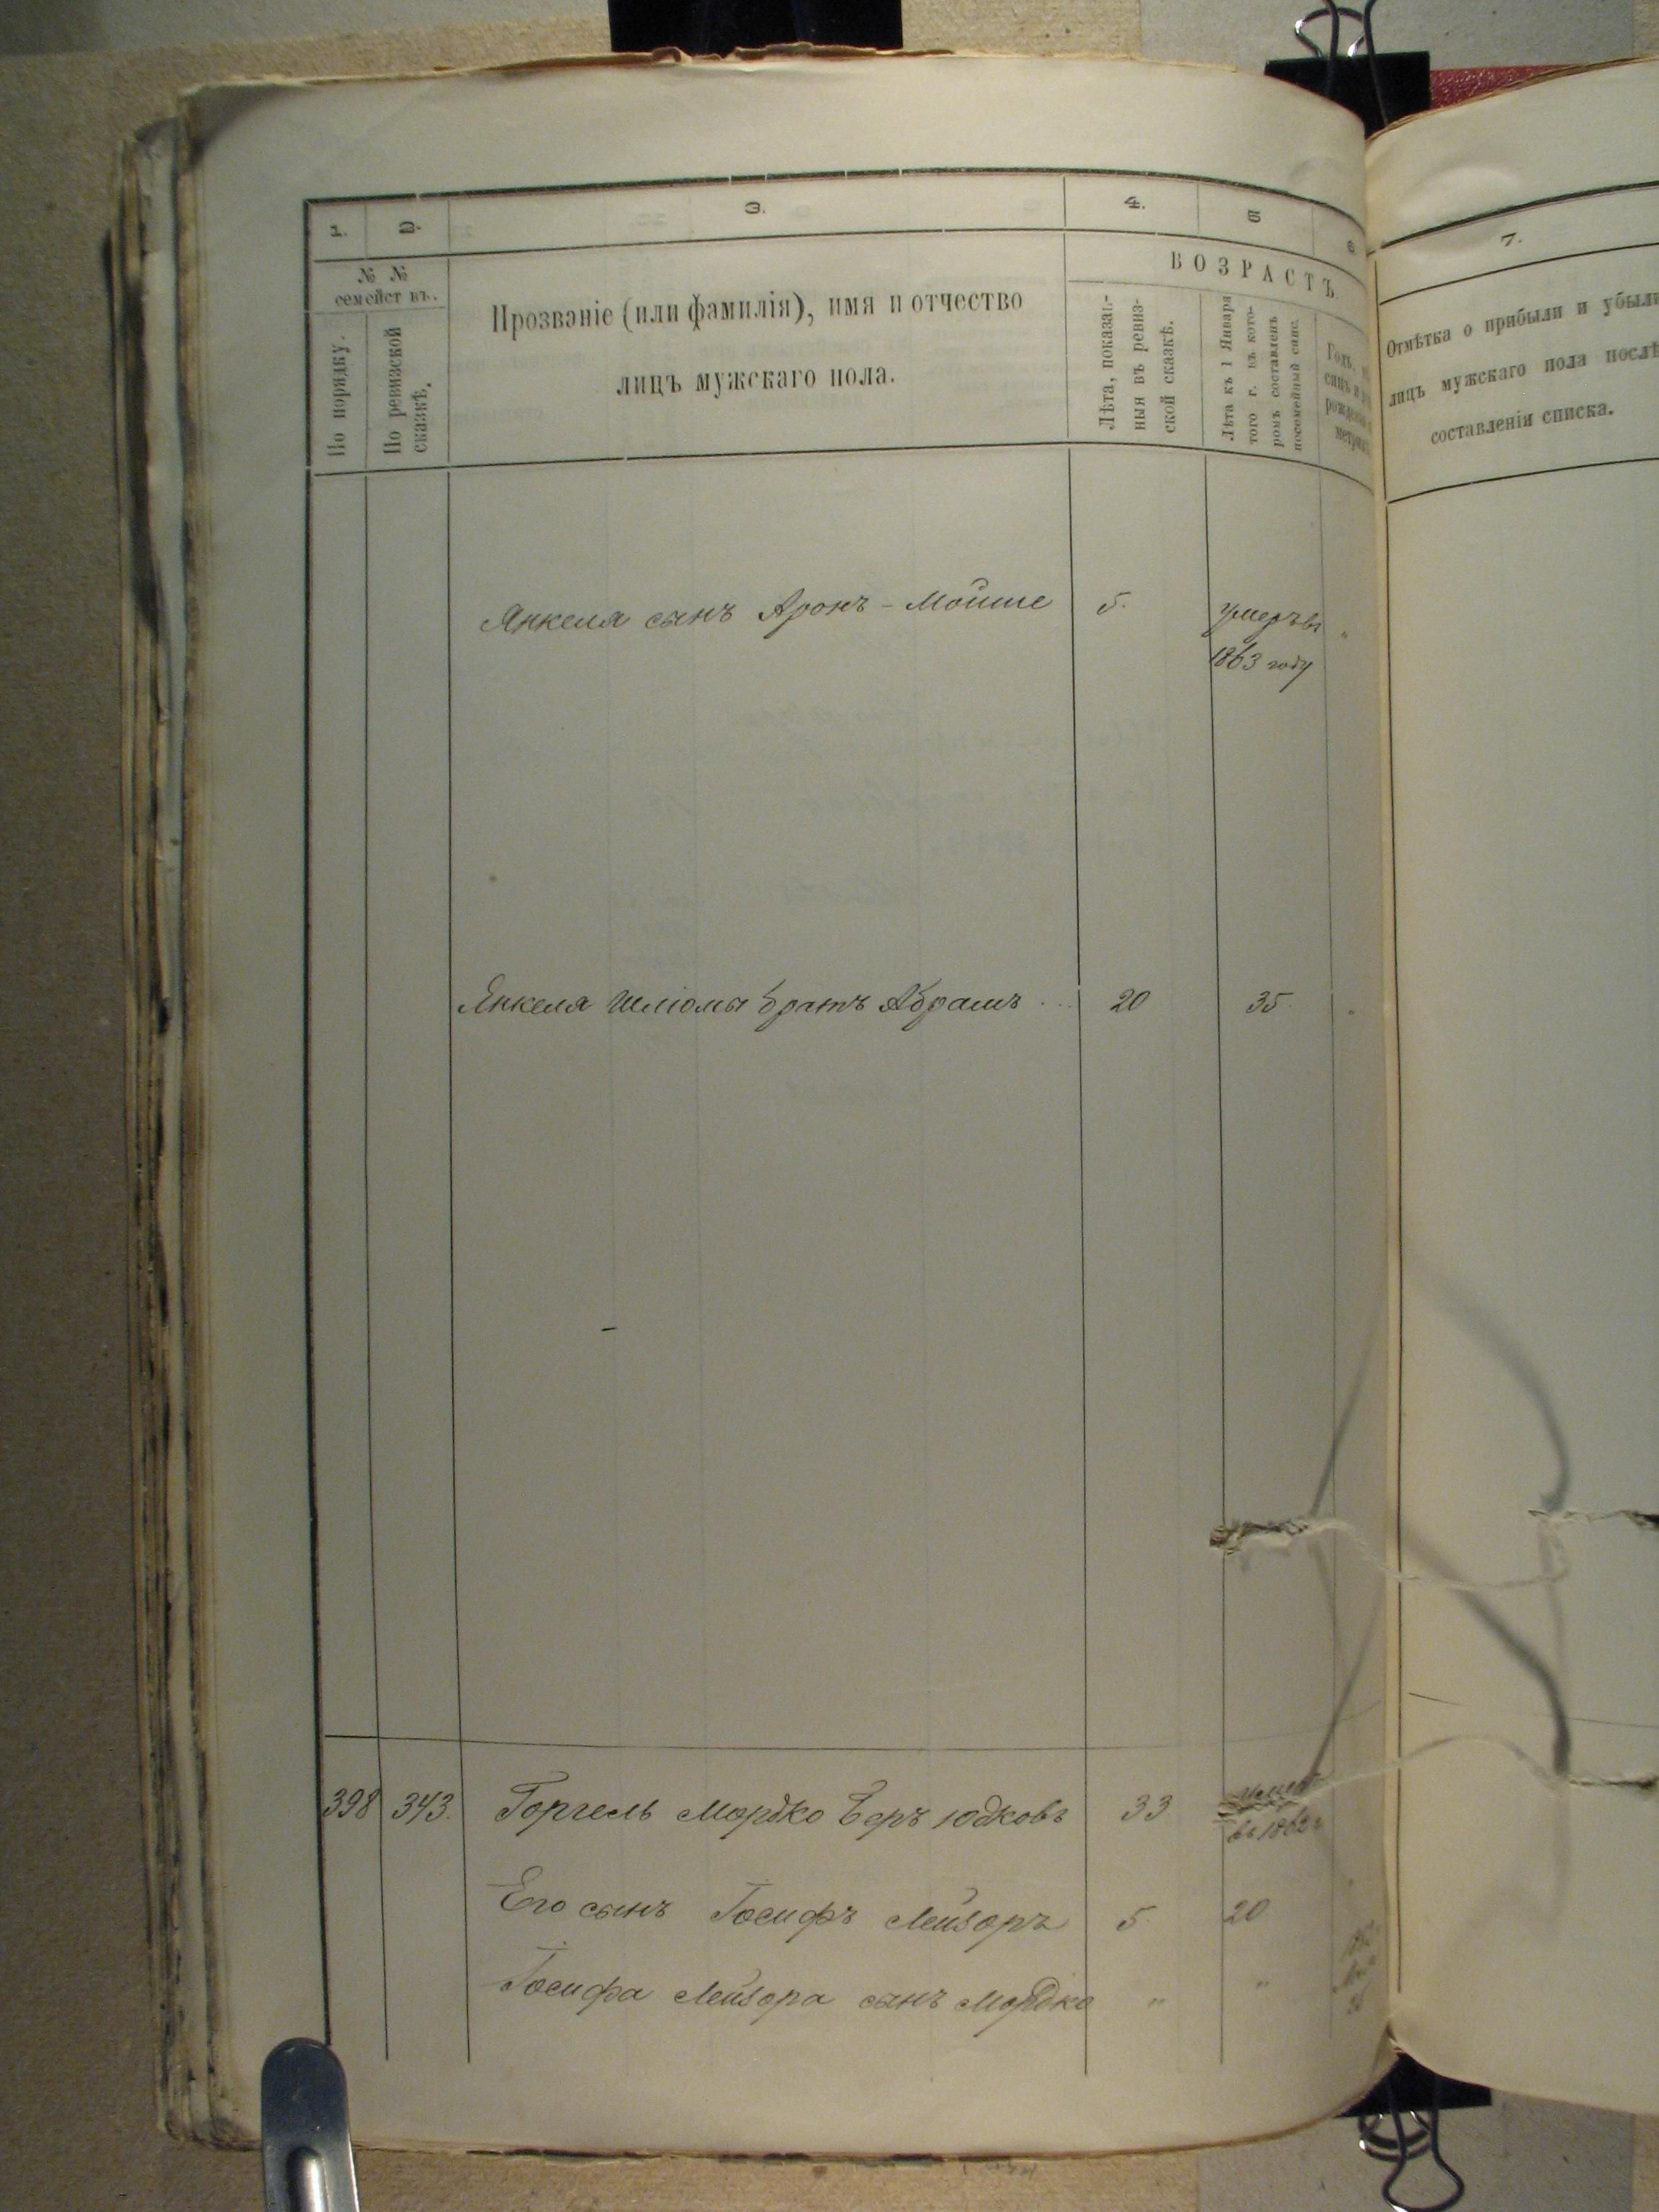 1. 2. 3. 4. 5 6 7.
№ № семействъ.
По порядку.
По ревизской сказкѣ.
Прозваніе (или фамилія), имя и отчество
лицъ мужскаго пола.
ВОЗРАСТЪ.
Лѣта, показан-
ныя въ ревиз-
ской сказкѣ.
Лѣта къ 1 Января
того г. въ кото-
ромъ составленъ
посемейный спис.
Годъ,
рожденія
Отмѣтка о прибыли и убыли
лицъ мужскаго пола послѣ
составленія списка.
Янкеля сынъ Аронъ-Мойше 5. умеръ въ "
1863 году
Янкеля Шліомы братъ Абрамъ ... 20 35. "
398 343. Горгель Мордко Беръ Юдковъ 33 умеръ
въ 1862 г
Его сынъ Іосифъ Лейзоръ 5. 20 "
Іосифа Лейзора сынъ Мордко " "